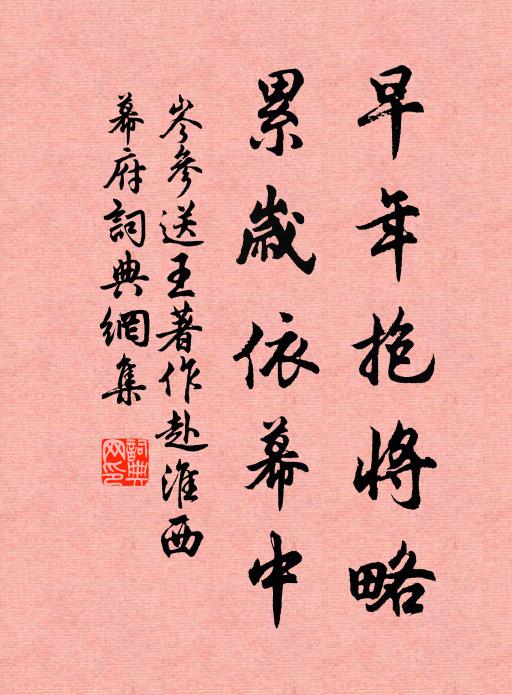 早年抱將略
累歲依幕中
岑參送王著作赴淮西
幕府詞典網集
詞典網印